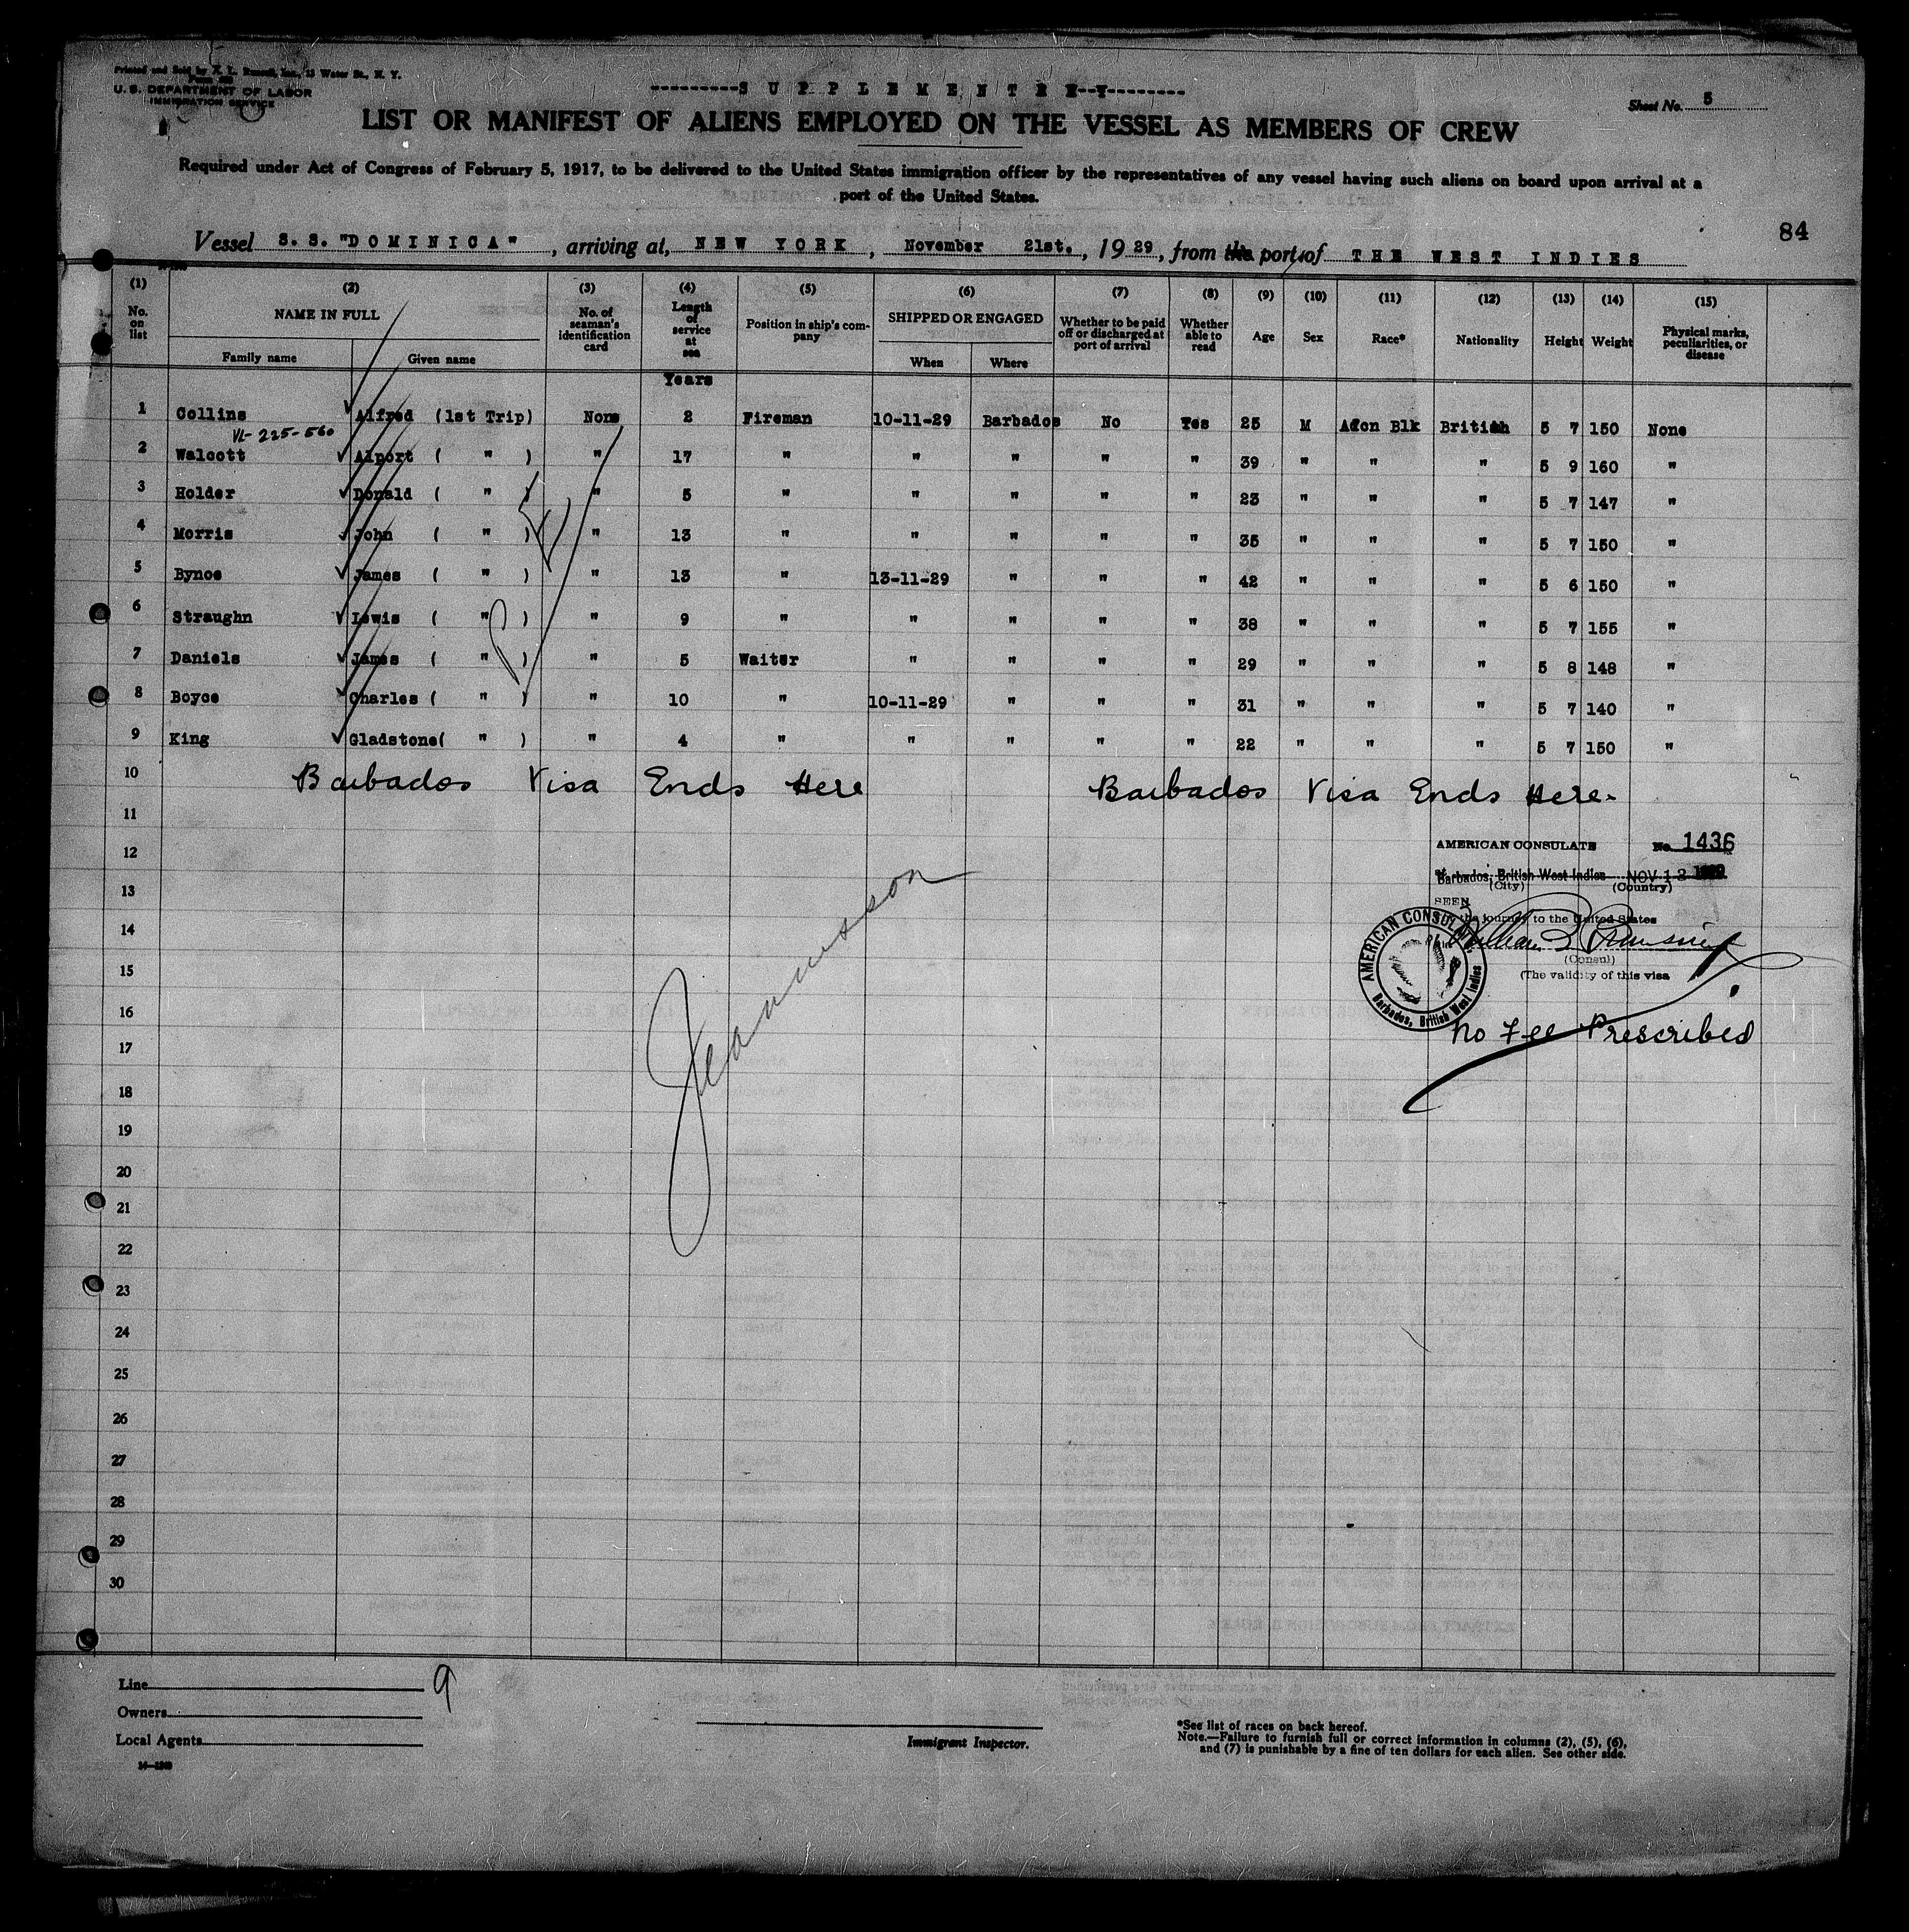 Printed and Sold by N. L. Russell, Inc., 13 Water St., N. Y.
U. S. DEPARTMENT OF LABOR
IMMIGRATION SERVICE
---------S U P P L E M E N T R Y--------
Sheet No. 5
LIST OR MANIFEST OF ALIENS EMPLOYED ON THE VESSEL AS MEMBERS OF CREW
Required under Act of Congress of February 5, 1917, to be delivered to the United States immigration officer by the representatives of any vessel having such aliens on board upon arrival at a
port of the United States.
84
Vessel S. S. "DOMINICA", arriving at, NEW YORK, November 21st., 19 29, from the port of THE WEST INDIES
(1) (2) (3) (4) (5) (6) (7) (8) (9) (10) (11) (12) (13) (14) (15)
No. on list NAME IN FULL Family name Given name No. of seaman's identification card Length of service at sea Position in ship's company SHIPPED OR ENGAGED When Where Whether to be paid off or discharged at port of arrival Whether able to read Age Sex Race* Nationality Height Weight Physical marks, peculiarities, or disease
Years
1 Collins Alfred (1st Trip) None 2 Fireman 10-11-29 Barbados No Yes 25 M Afcn Blk British 5 7 150 None
VL-225-560
2 Walcott Alport ( " ) " 17 " " " " " 39 " " " 5 9 160 "
3 Holder Donald ( " ) " 5 " " " " " 23 " " " 5 7 147 "
4 Morris John ( " ) " 13 " " " " " 35 " " " 5 7 150 "
5 Bynoe James ( " ) " 13 " 13-11-29 " " " 42 " " " 5 6 150 "
6 Straughn Lewis ( " ) " 9 " " " " " 38 " " " 5 7 155 "
7 Daniels James ( " ) " 5 Waiter " " " " 29 " " " 5 8 148 "
8 Boyce Charles ( " ) " 10 " 10-11-29 " " " 31 " " " 5 7 140 "
9 King Gladstone( " ) " 4 " " " " " 22 " " " 5 7 150 "
10 Barbados Visa Ends Here Barbados Visa Ends Here.
11
12 AMERICAN CONSULATE No. 1436
Barbados, British West Indies NOV 13 1929
(City) (Country)
13
SEEN
the journey to the United States
14
(Consul)
15 (The validity of this visa
AMERICAN CONSULATE
Barbados, British West Indies
16
No Fee Prescribed
17
18
19
20
21
22
23
24
25
26
27
28
29
30
Line 9
Owners
Local Agents
Immigrant Inspector.
*See list of races on back hereof.
Note.—Failure to furnish full or correct information in columns (2), (5), (6),
and (7) is punishable by a fine of ten dollars for each alien. See other side.